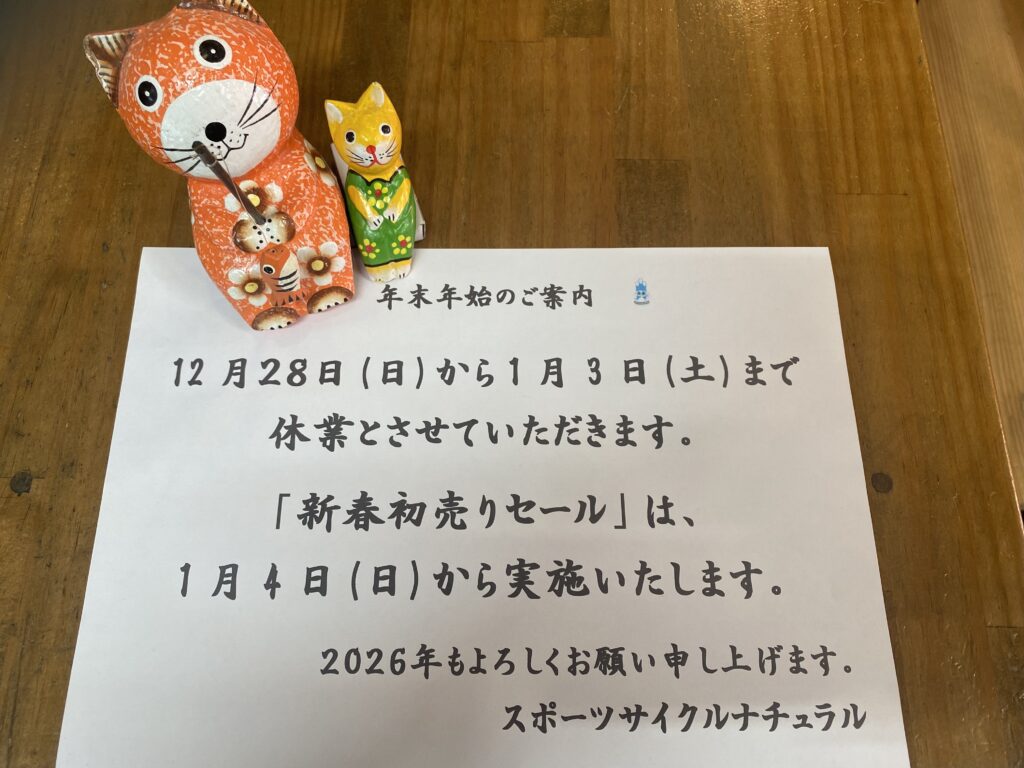 年末年始のご案内
12月28日(日)から1月3日(土)まで
休業とさせていただきます。
「新春初売りセール」は、
1月4日(日)から実施いたします。
2026年もよろしくお願い申し上げます。
スポーツサイクルナチュラル